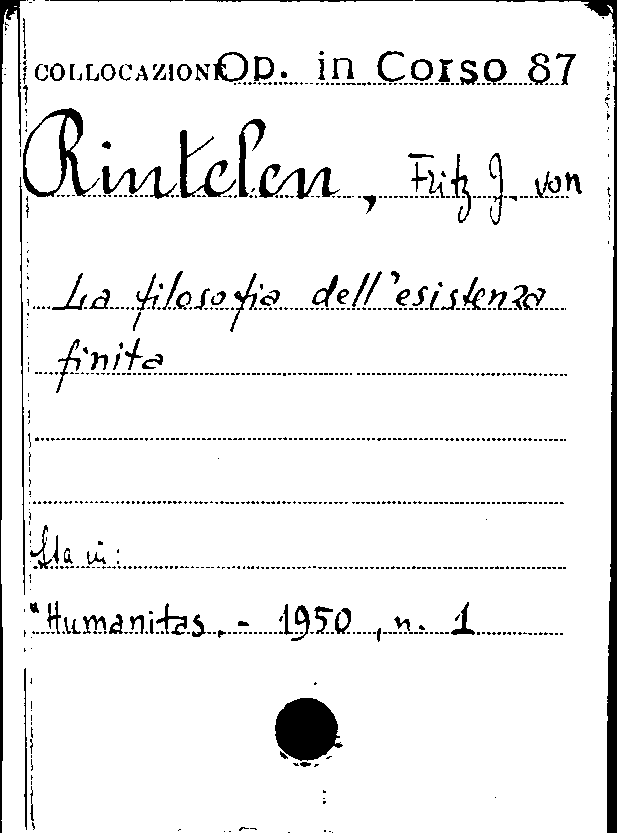 COLLOCAZIONE Op. in Corso 87
Rintelen, Fritz J. von
La filosofia dell'esistenza
finita
Sta in:
"Humanitas, - 1950, n. 1